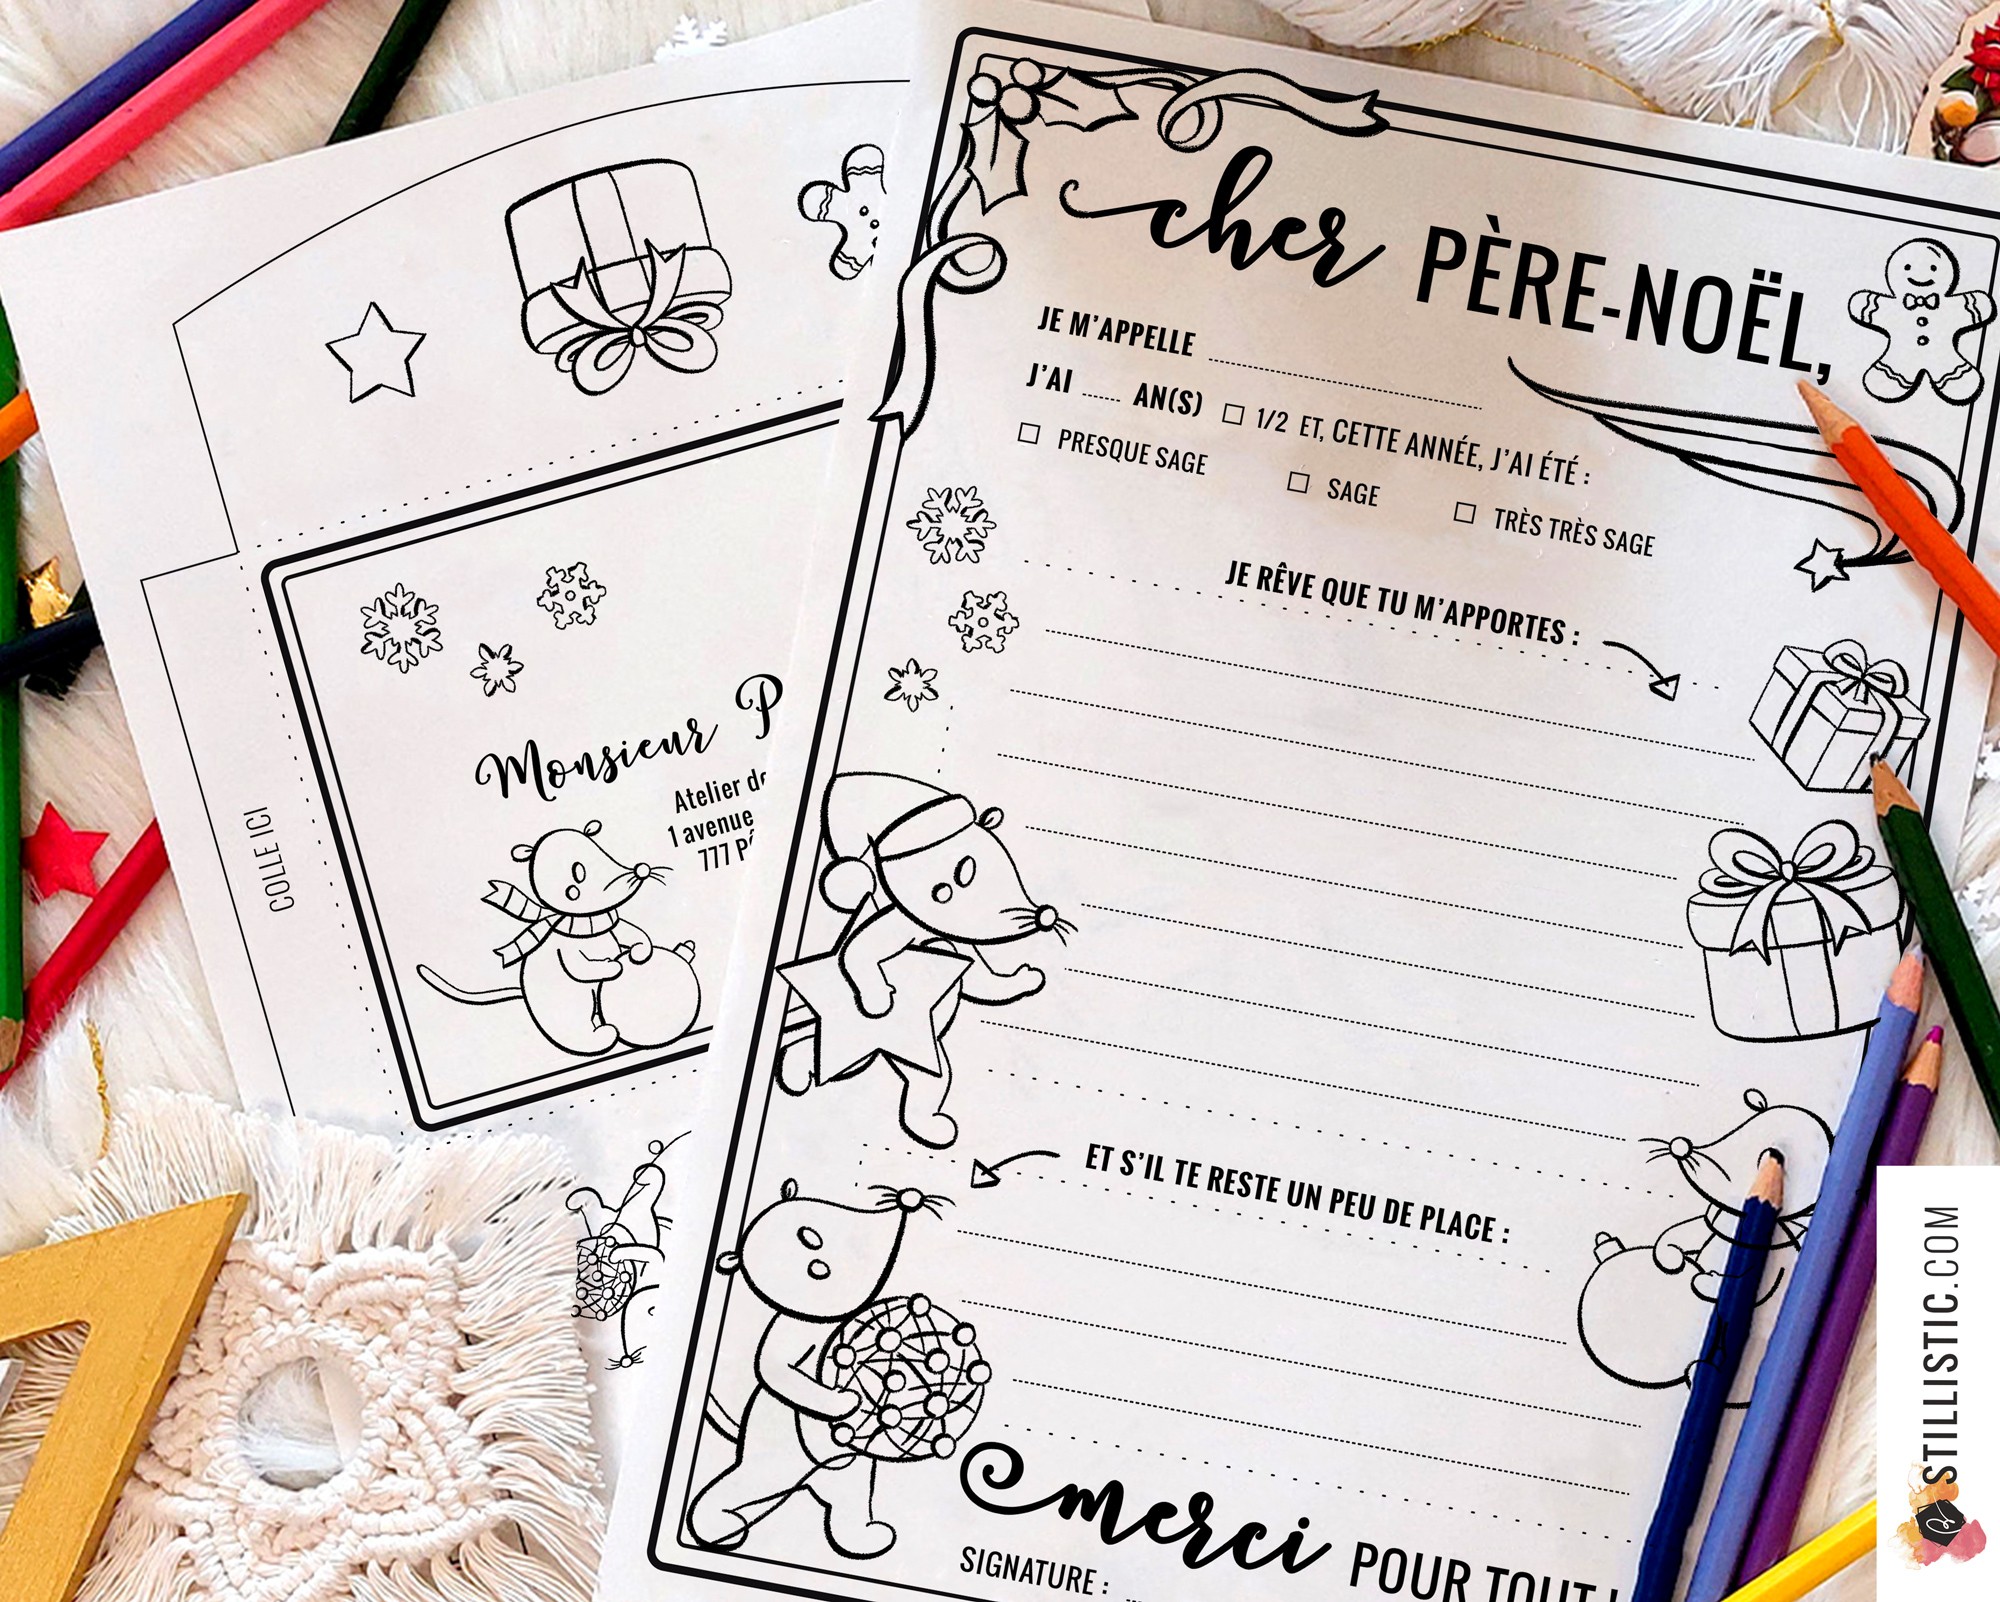 cher PÈRE-NOËL,
JE M'APPELLE
J'AI AN(S) 1/2 ET, CETTE ANNÉE, J'AI ÉTÉ :
PRESQUE SAGE SAGE TRÈS TRÈS SAGE
JE RÊVE QUE TU M'APPORTES :
ET S'IL TE RESTE UN PEU DE PLACE :
merci POUR TOUT !
SIGNATURE :
Monsieur P
Atelier de
1 avenue
777 Pé
COLLE ICI
STILLISTIC.COM